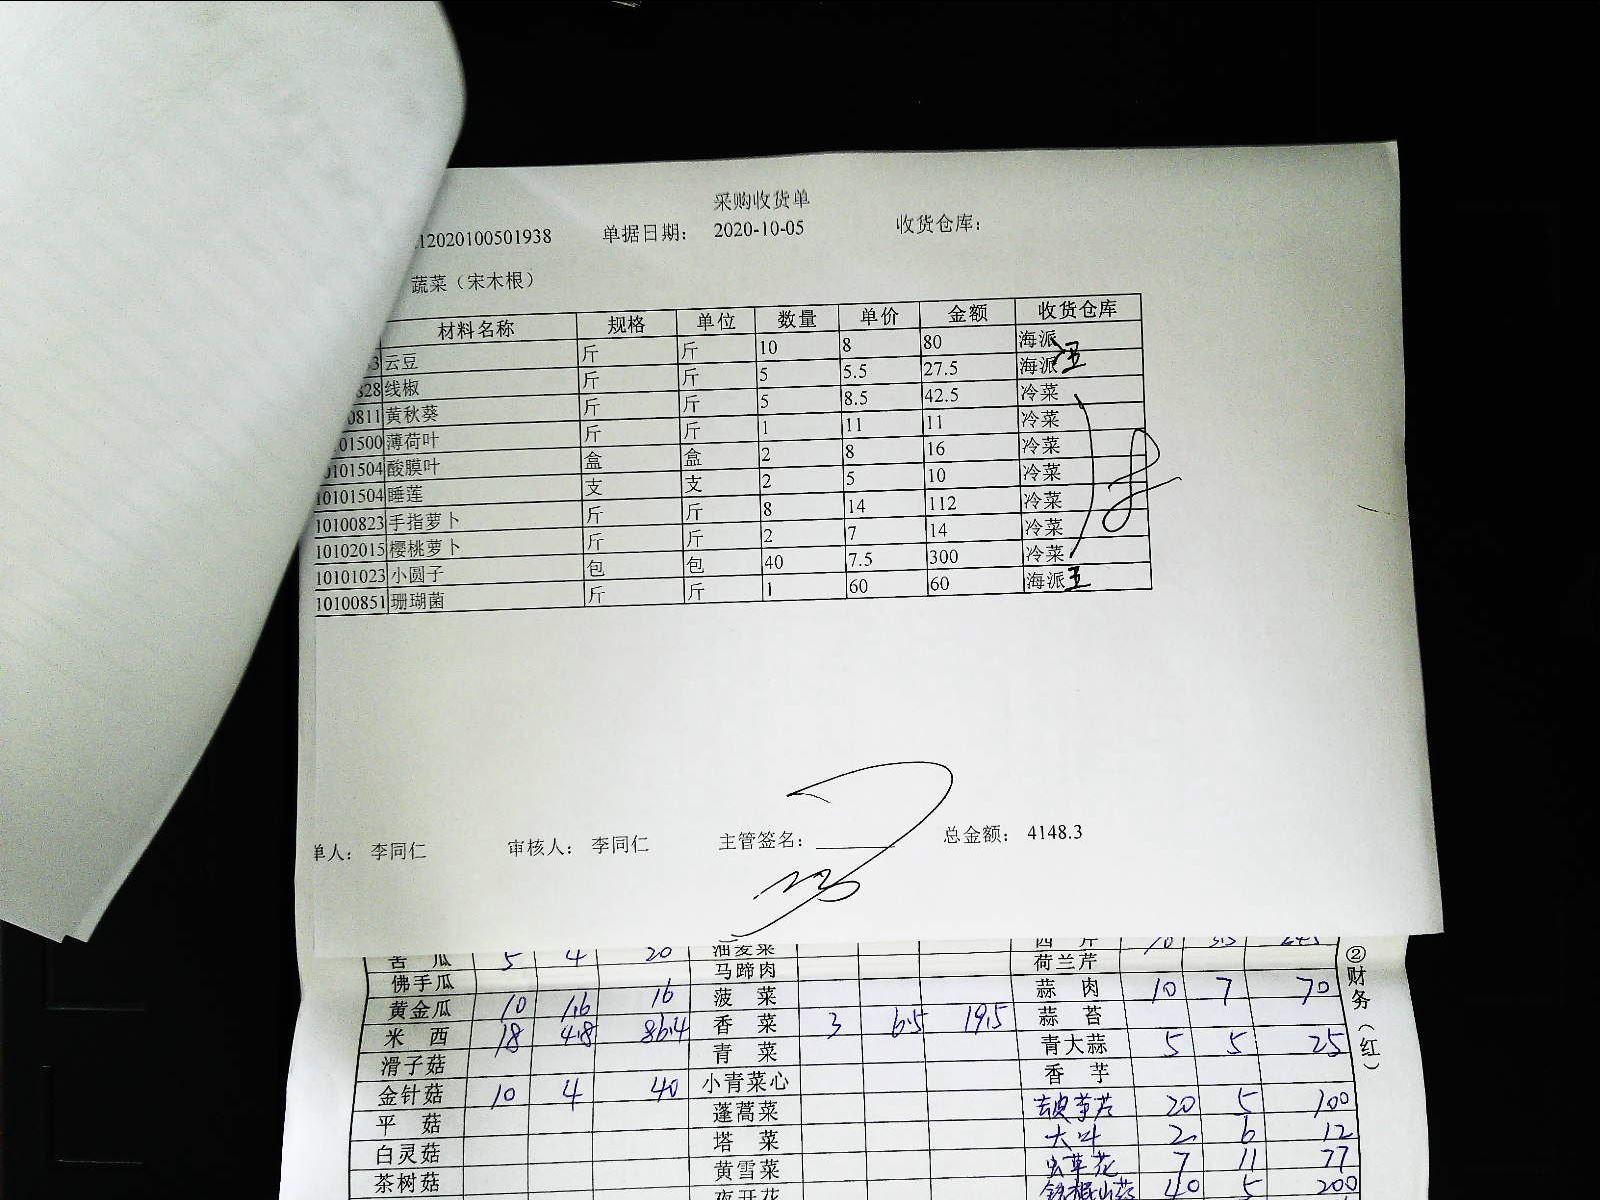 采购收货单
12020100501938 单据日期： 2020-10-05 收货仓库：
蔬菜（宋木根）
材料名称 规格 单位 数量 单价 金额 收货仓库
3 云豆 斤 斤 10 8 80 海派
828 线椒 斤 斤 5 5.5 27.5 海派 王
0811 黄秋葵 斤 斤 5 8.5 42.5 冷菜
101500 薄荷叶 斤 斤 1 11 11 冷菜
10101504 酸膜叶 盒 盒 2 8 16 冷菜
10101504 睡莲 支 支 2 5 10 冷菜
10100823 手指萝卜 斤 斤 8 14 112 冷菜
10102015 樱桃萝卜 斤 斤 2 7 14 冷菜
10101023 小圆子 包 包 40 7.5 300 冷菜
10100851 珊瑚菌 斤 斤 1 60 60 海派 王
单人： 李同仁 审核人： 李同仁 主管签名： 总金额： 4148.3
苦瓜 5 4 20 油麦菜 西芹 10
佛手瓜 马蹄肉 荷兰芹
黄金瓜 10 1.6 16 菠菜 蒜肉 10 7 70
米西 18 4.8 86.4 香菜 3 6.5 19.5 蒜苔
滑子菇 青菜 青大蒜 5 5 25
金针菇 10 4 40 小青菜心 香芋
平菇 蓬蒿菜 20 5 100
白灵菇 塔菜 大叶 2 6 12
茶树菇 黄雪菜 虫草花 7 11 77
夜开花 铁棍山药 40 5 200
②财务（红）